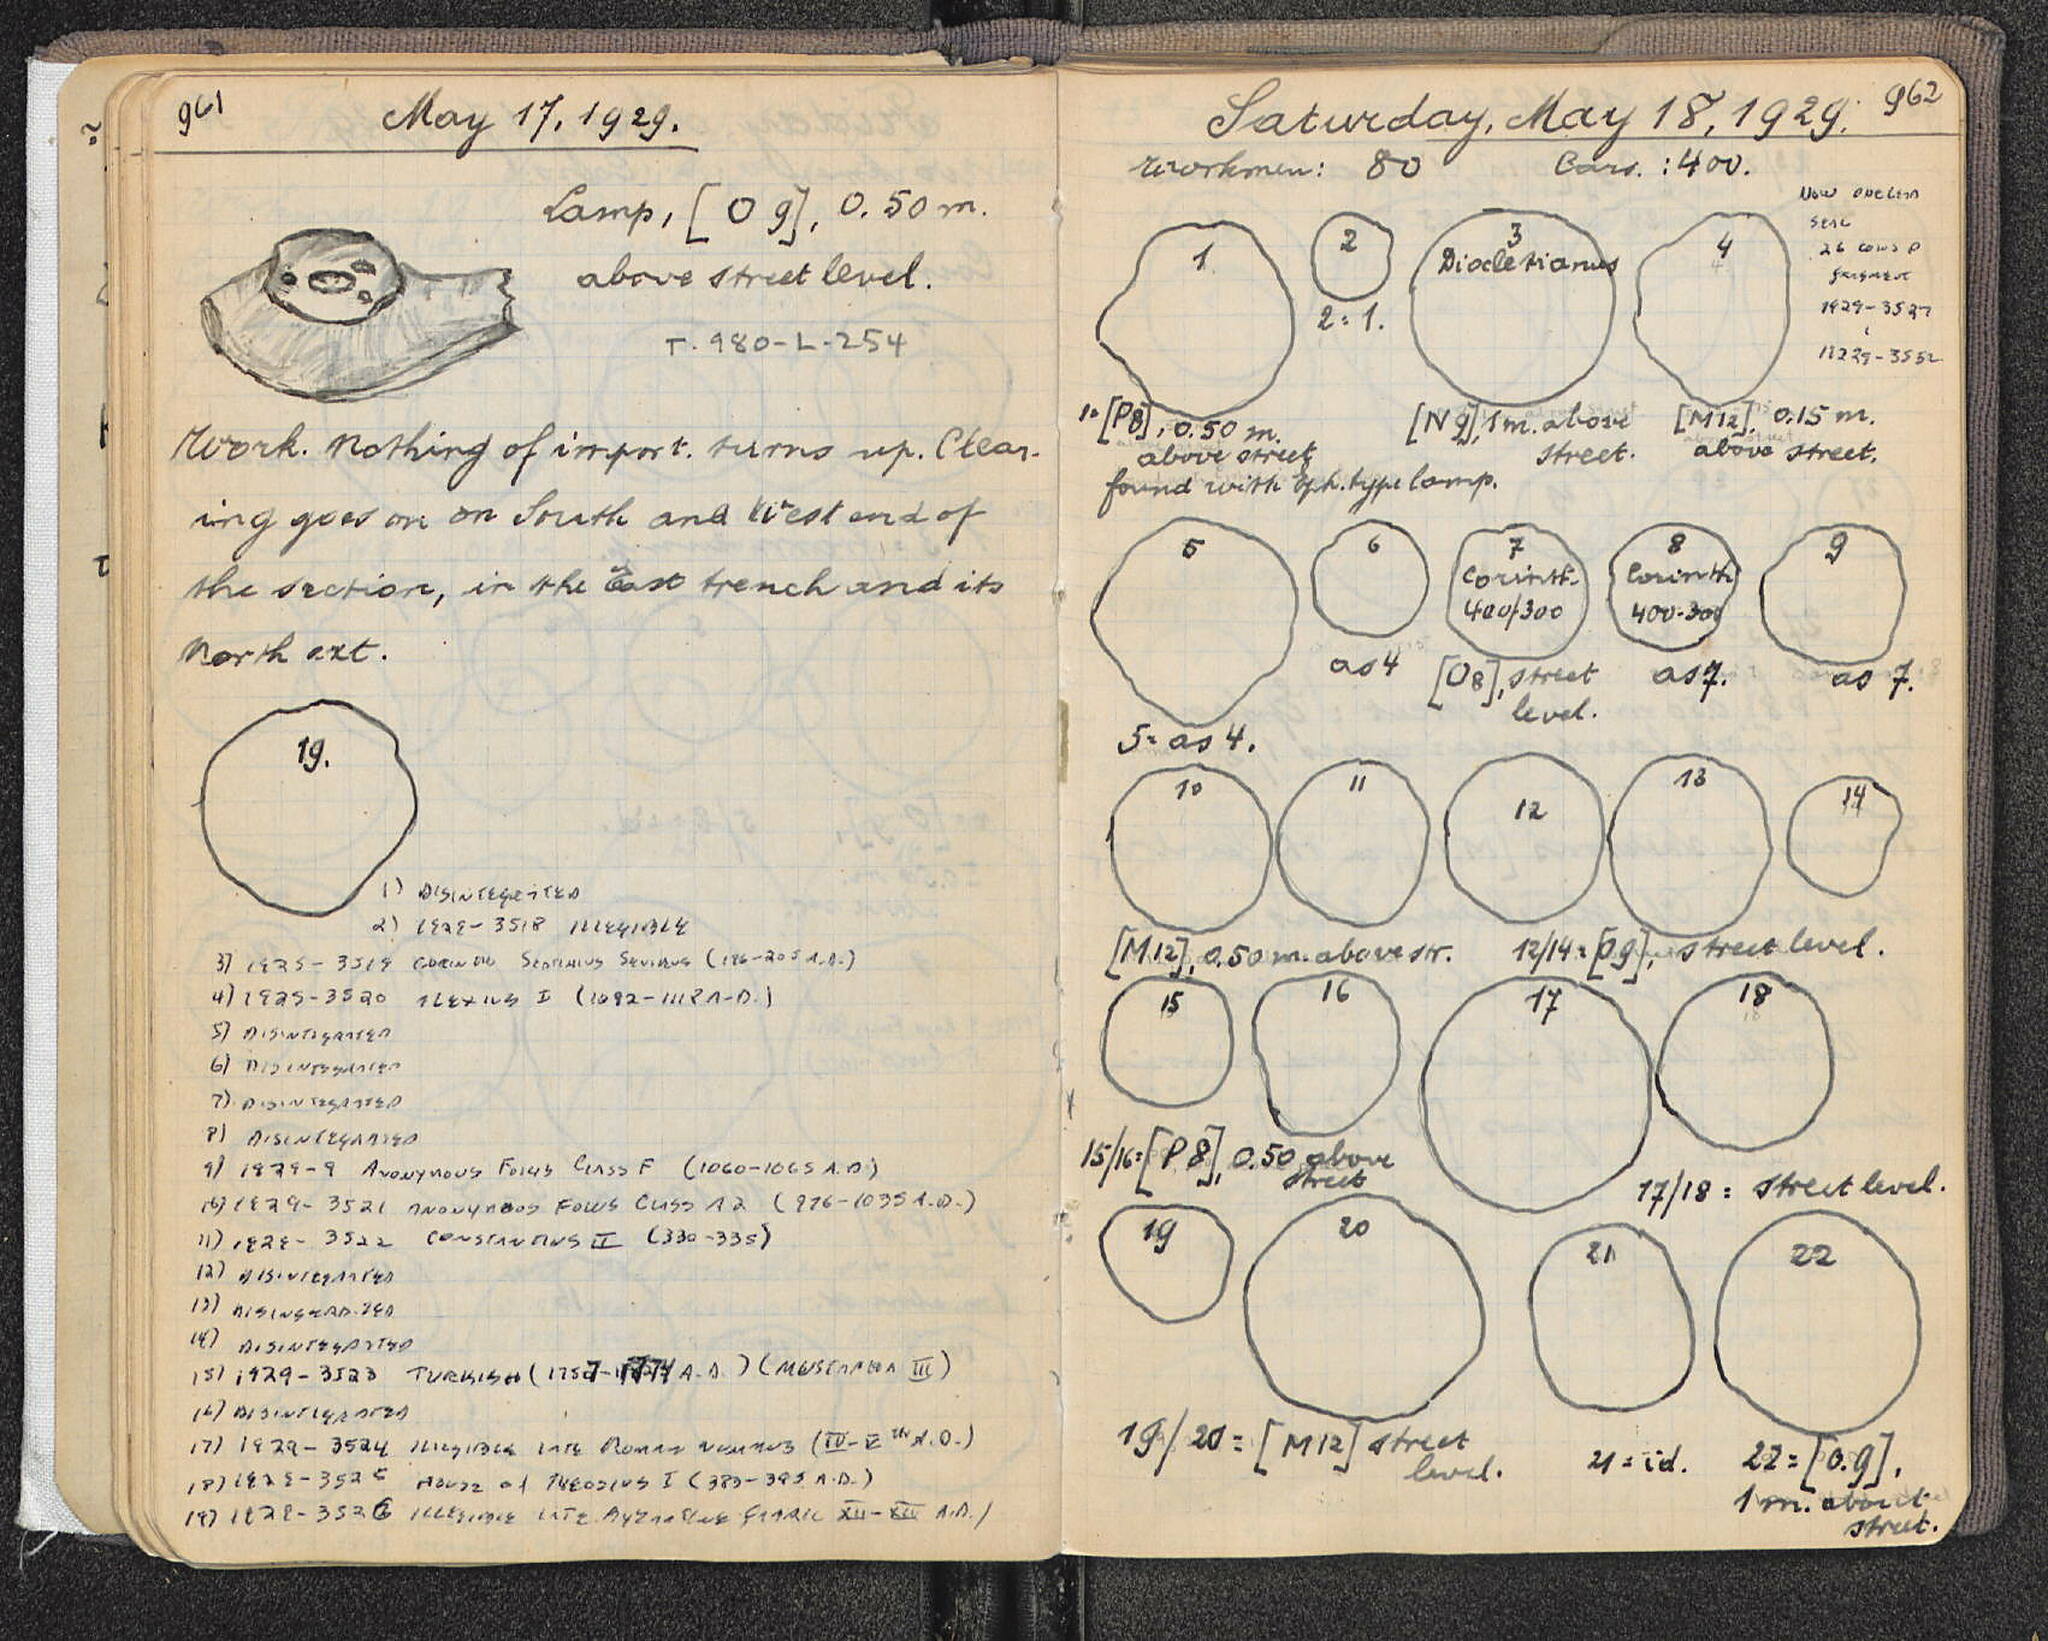 961
May 17, 1929.
Lamp, [O 9], 0.50 m.
above street level.
T. 980-L-254
Work. Nothing of import. turns up. Clear-
ing goes on on South and West end of
the section, in the East trench and its
North ext.
19.
1) DISINTEGRATED
2) 1929-3518 ILLEGIBLE
3) 1929-3519 SEPTIMIUS SEVERUS
4) 1929-3520 ALEXIUS I (1092-1118 A.D.)
5) DISINTEGRATED
6) DISINTEGRATED
7) DISINTEGRATED
8) DISINTEGRATED
9) 1929-9 ANONYMOUS FOLLIS CLASS F (1060-1065 A.D.)
10) 1929-3521 ANONYMOUS FOLLIS CLASS A2 (976-1035 A.D.)
11) 1929-3522 CONSTANTIUS II (330-335)
12) DISINTEGRATED
13) DISINTEGRATED
14) DISINTEGRATED
15) 1929-3523 TURKISH (1757-1774 A.D.) (MUSTAPHA III)
16) DISINTEGRATED
17) 1929-3524 ILLEGIBLE LATE ROMAN (IV-V th A.D.)
18) 1929-3525 HOUSE OF I (383-395 A.D.)
19) 1929-3526 ILLEGIBLE LATE A.D.)
962
Saturday, May 18, 1929.
Workmen: 80 Cars.: 400.
26 COINS
FRAGMENT
1929-3527
1929-3552
1
2
3
Diocletianus
4
2=1.
1=[P8], 0.50 m.
above street
found with Eph. type lamp.
[N 9], 1 m. above
street.
[M12], 0.15 m.
above street.
5
6
7
Corinth.
400/300
8
Corinth
400-300
9
as 4
[O8], street
level.
as 7.
as 7.
5= as 4.
10
11
12
13
14
[M12], 0.50 m. above str.
12/14=[O9], street level.
15
16
17
18
15/16=[P 8], 0.50 above
street
17/18 = street level.
19
20
21
22
19/20=[M12] street
level.
21=id.
22=[O.9],
1 m. about
street.